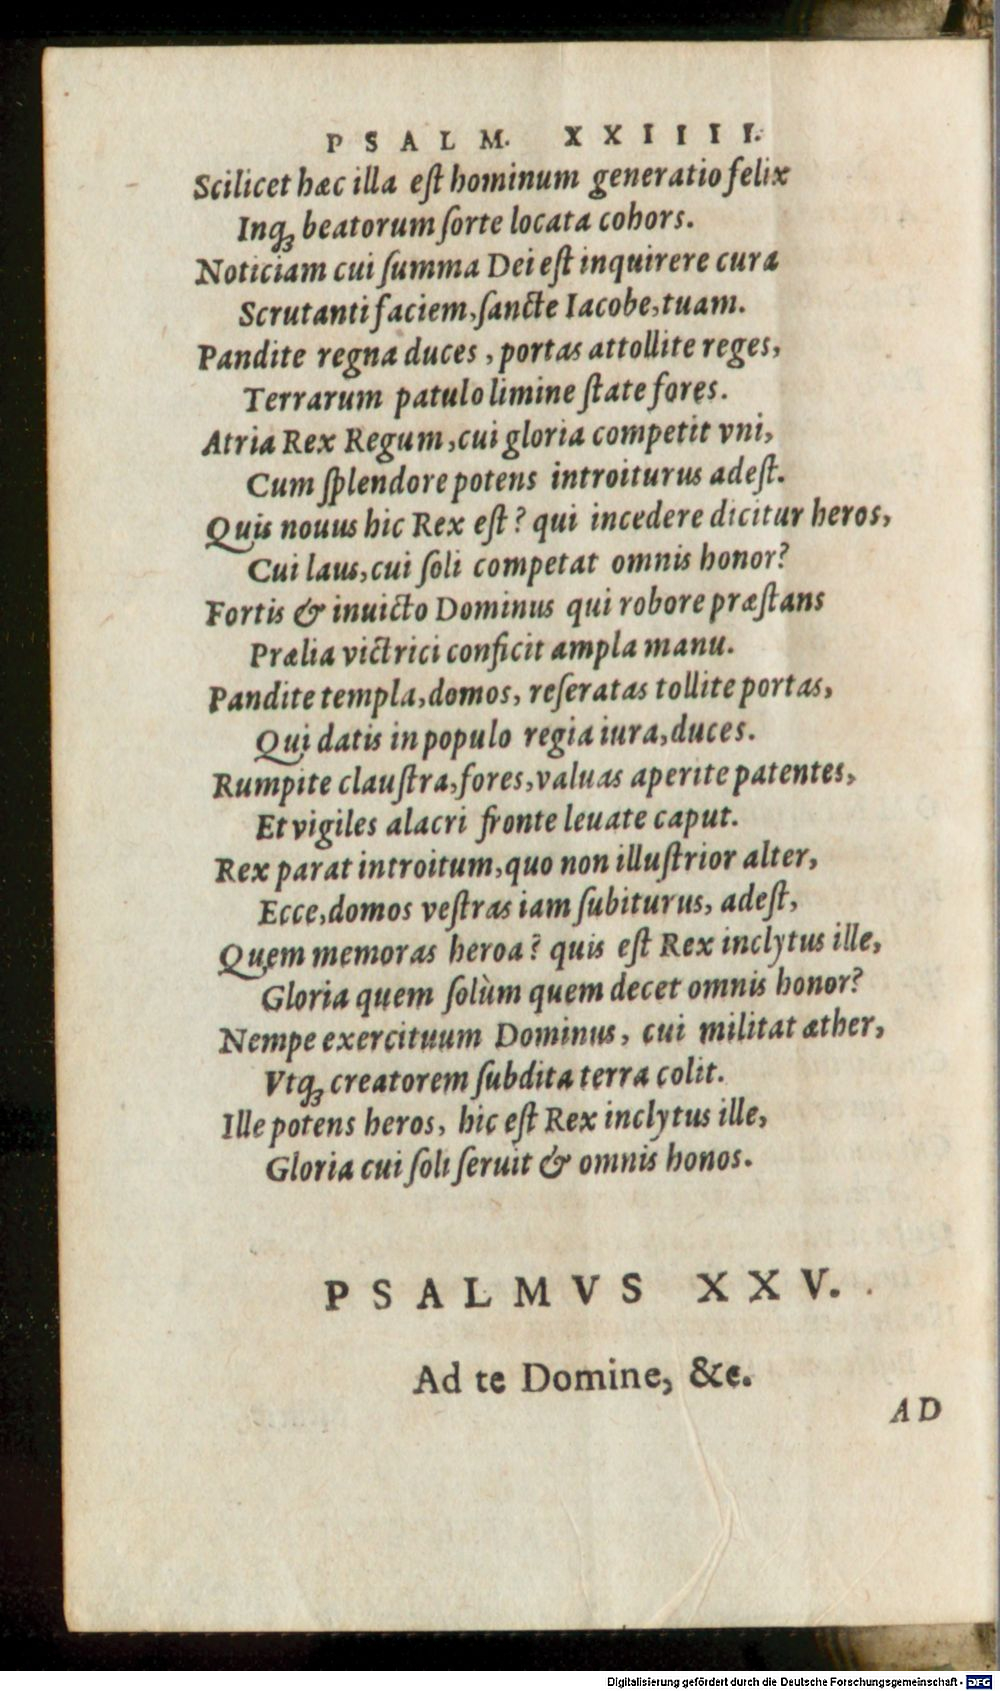 PSALM. XXIIII.
Scilicet hæc illa eſt hominum generatio felix
Inq; beatorum ſorte locata cohors.
Noticiam cui ſumma Dei eſt inquirere cura
Scrutanti faciem, ſancte Iacobe, tuam.
Pandite regna duces, portas attollite reges,
Terrarum patulo limine ſtate fores.
Atria Rex Regum, cui gloria competit vni,
Cum ſplendore potens introiturus adeſt.
Quis nouus hic Rex eſt? qui incedere dicitur heros,
Cui laus, cui ſoli competat omnis honor?
Fortis & inuicto Dominus qui robore præſtans
Prælia victrici conficit ampla manu.
Pandite templa, domos, reſeratas tollite portas,
Qui datis in populo regia iura, duces.
Rumpite clauſtra, fores, valuas aperite patentes,
Et vigiles alacri fronte leuate caput.
Rex parat introitum, quo non illuſtrior alter,
Ecce, domos veſtras iam ſubiturus, adeſt,
Quem memoras heroa? quis eſt Rex inclytus ille,
Gloria quem ſolùm quem decet omnis honor?
Nempe exercituum Dominus, cui militat æther,
Vtq; creatorem ſubdita terra colit.
Ille potens heros, hic eſt Rex inclytus ille,
Gloria cui ſoli ſeruit & omnis honos.
PSALMVS XXV.
Ad te Domine, &c.
AD
Digitalisierung gefördert durch die Deutsche Forschungsgemeinschaft - DFG